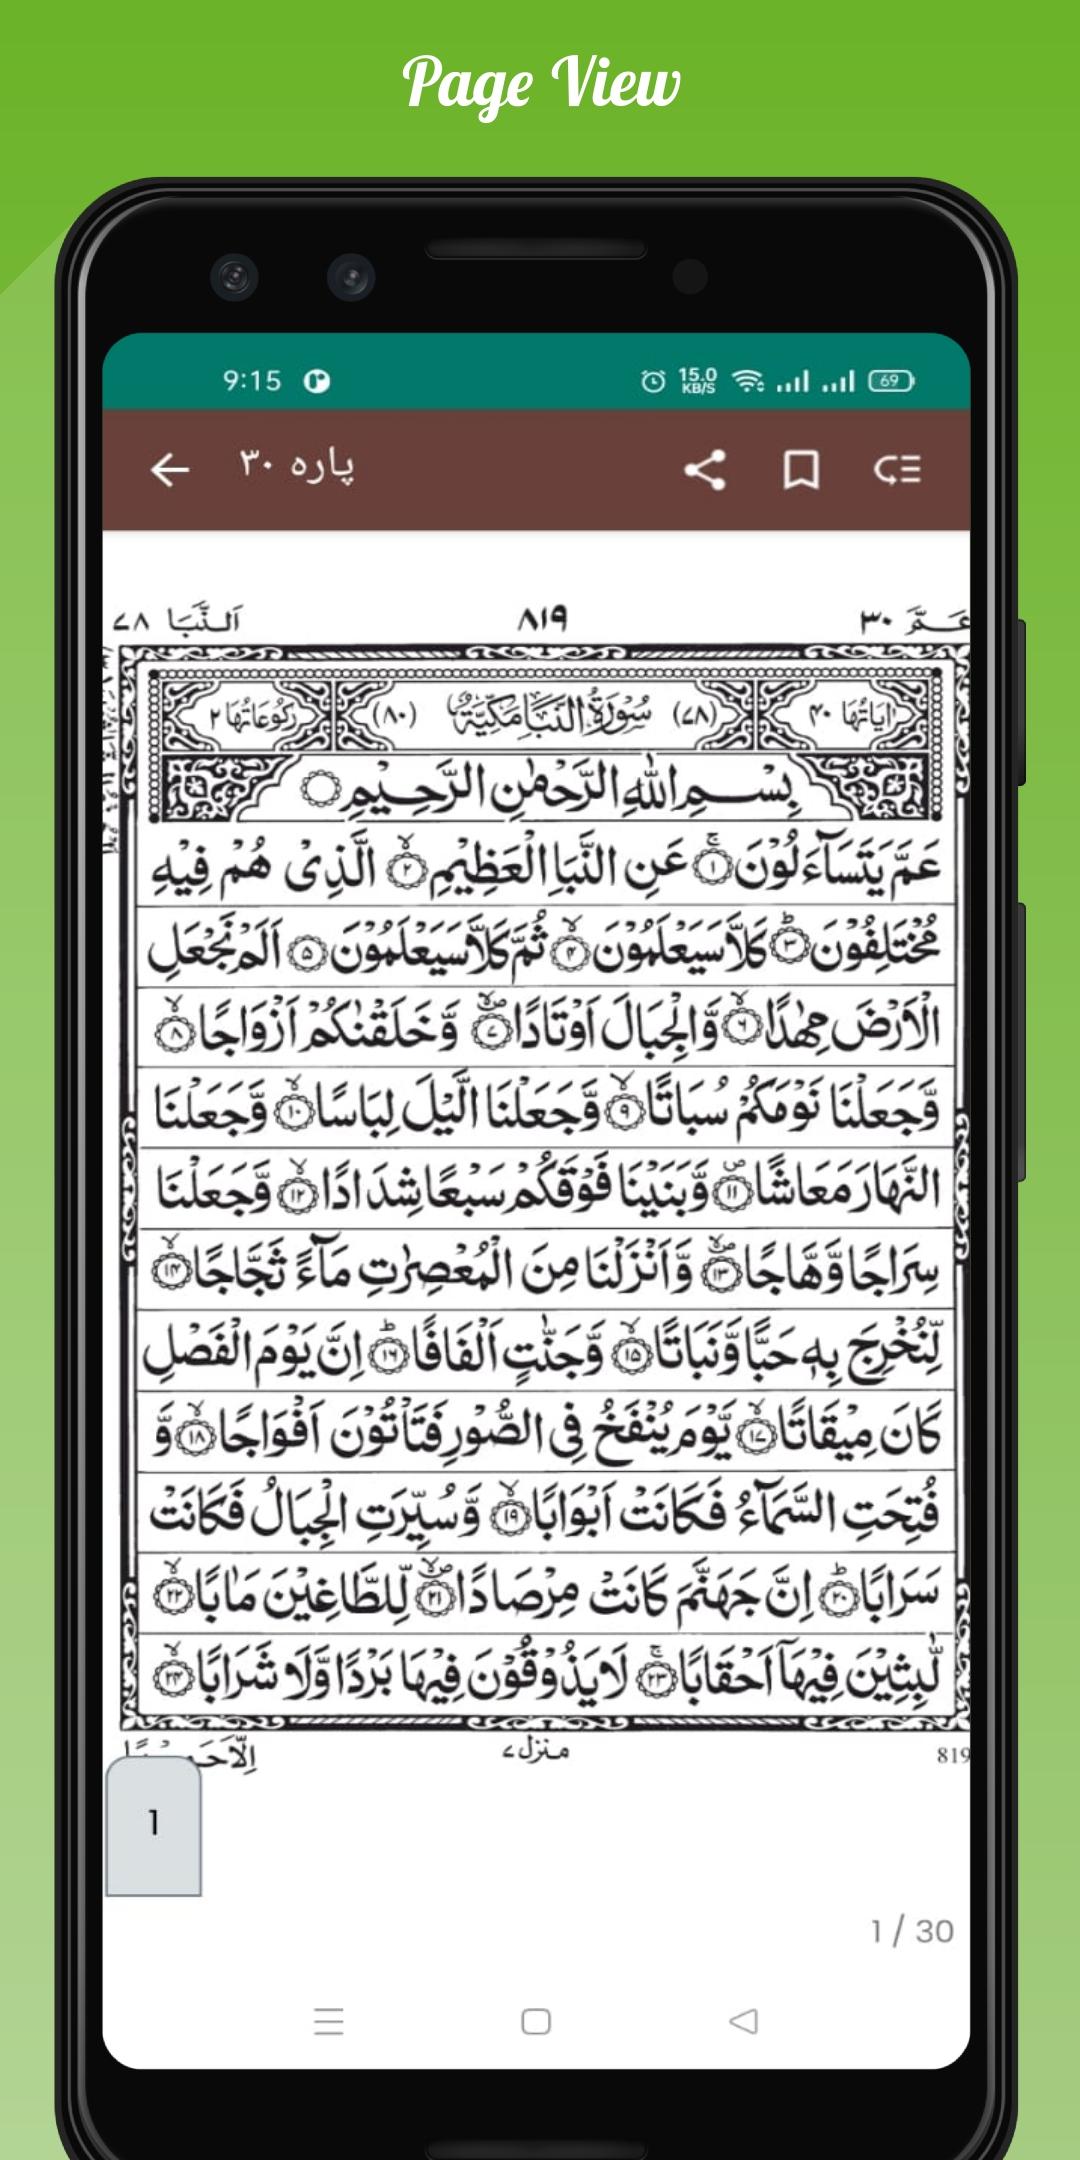 Page View
9:15
15.0
KB/S
69
پارہ ۳۰
عَـمَّ ۳۰
۸۱۹
اَلنَّبَا ۷۸
اٰیَاتُهَا ۴۰
(۷۸) سُوْرَةُ النَّبَاِ مَكِّيَّةٌ (۸۰)
رُكُوْعَاتُهَا ۲
بِسْــمِ اللّٰهِ الرَّحْمٰنِ الرَّحِـيْمِ
عَمَّ يَتَسَآءَلُوْنَ ۚ‏ ۱ عَنِ النَّبَاِ الْعَظِيْمِ ۙ‏ ۲ الَّذِىْ هُمْ فِيْهِ
مُخْتَلِفُوْنَ ؕ‏ ۳ كَلَّا سَيَعْلَمُوْنَ ۙ‏ ۴ ثُمَّ كَلَّا سَيَعْلَمُوْنَ ۵ اَلَمْ نَجْعَلِ
الْاَرْضَ مِهٰدًا ۙ‏ ۶ وَّالْجِبَالَ اَوْتَادًا ۪ۙ‏ ۷ وَّخَلَقْنٰكُمْ اَزْوَاجًا ۙ‏ ۸
وَّجَعَلْنَا نَوْمَكُمْ سُبَاتًا ۙ‏ ۹ وَّجَعَلْنَا الَّيْلَ لِبَاسًا ۙ‏ ۱۰ وَّجَعَلْنَا
النَّهَارَ مَعَاشًا ۪‏ ۱۱ وَّبَنَيْنَا فَوْقَكُمْ سَبْعًا شِدَادًا ۙ‏ ۱۲ وَّجَعَلْنَا
سِرَاجًا وَّهَّاجًا ۪ۙ‏ ۱۳ وَّاَنْزَلْنَا مِنَ الْمُعْصِرٰتِ مَآءً ثَجَّاجًا ۙ‏ ۱۴
لِّنُخْرِجَ بِهٖ حَبًّا وَّنَبَاتًا ۙ‏ ۱۵ وَّجَنّٰتٍ اَلْفَافًا ؕ‏ ۱۶ اِنَّ يَوْمَ الْفَصْلِ
كَانَ مِيْقَاتًا ۙ‏ ۱۷ يَّوْمَ يُنْفَخُ فِى الصُّوْرِ فَتَاْتُوْنَ اَفْوَاجًا ۙ‏ ۱۸ وَّ
فُتِحَتِ السَّمَآءُ فَكَانَتْ اَبْوَابًا ۙ‏ ۱۹ وَّسُيِّرَتِ الْجِبَالُ فَكَانَتْ
سَرَابًا ؕ‏ ۲۰ اِنَّ جَهَنَّمَ كَانَتْ مِرْصَادًا ۪ۙ‏ ۲۱ لِّلطَّاغِيْنَ مَاٰبًا ۙ‏ ۲۲
لّٰبِثِيْنَ فِيْهَاۤ اَحْقَابًا ۚ‏ ۲۳ لَا يَذُوْقُوْنَ فِيْهَا بَرْدًا وَّلَا شَرَابًا ۙ‏ ۲۴
819
منزل ۷
1
1 / 30